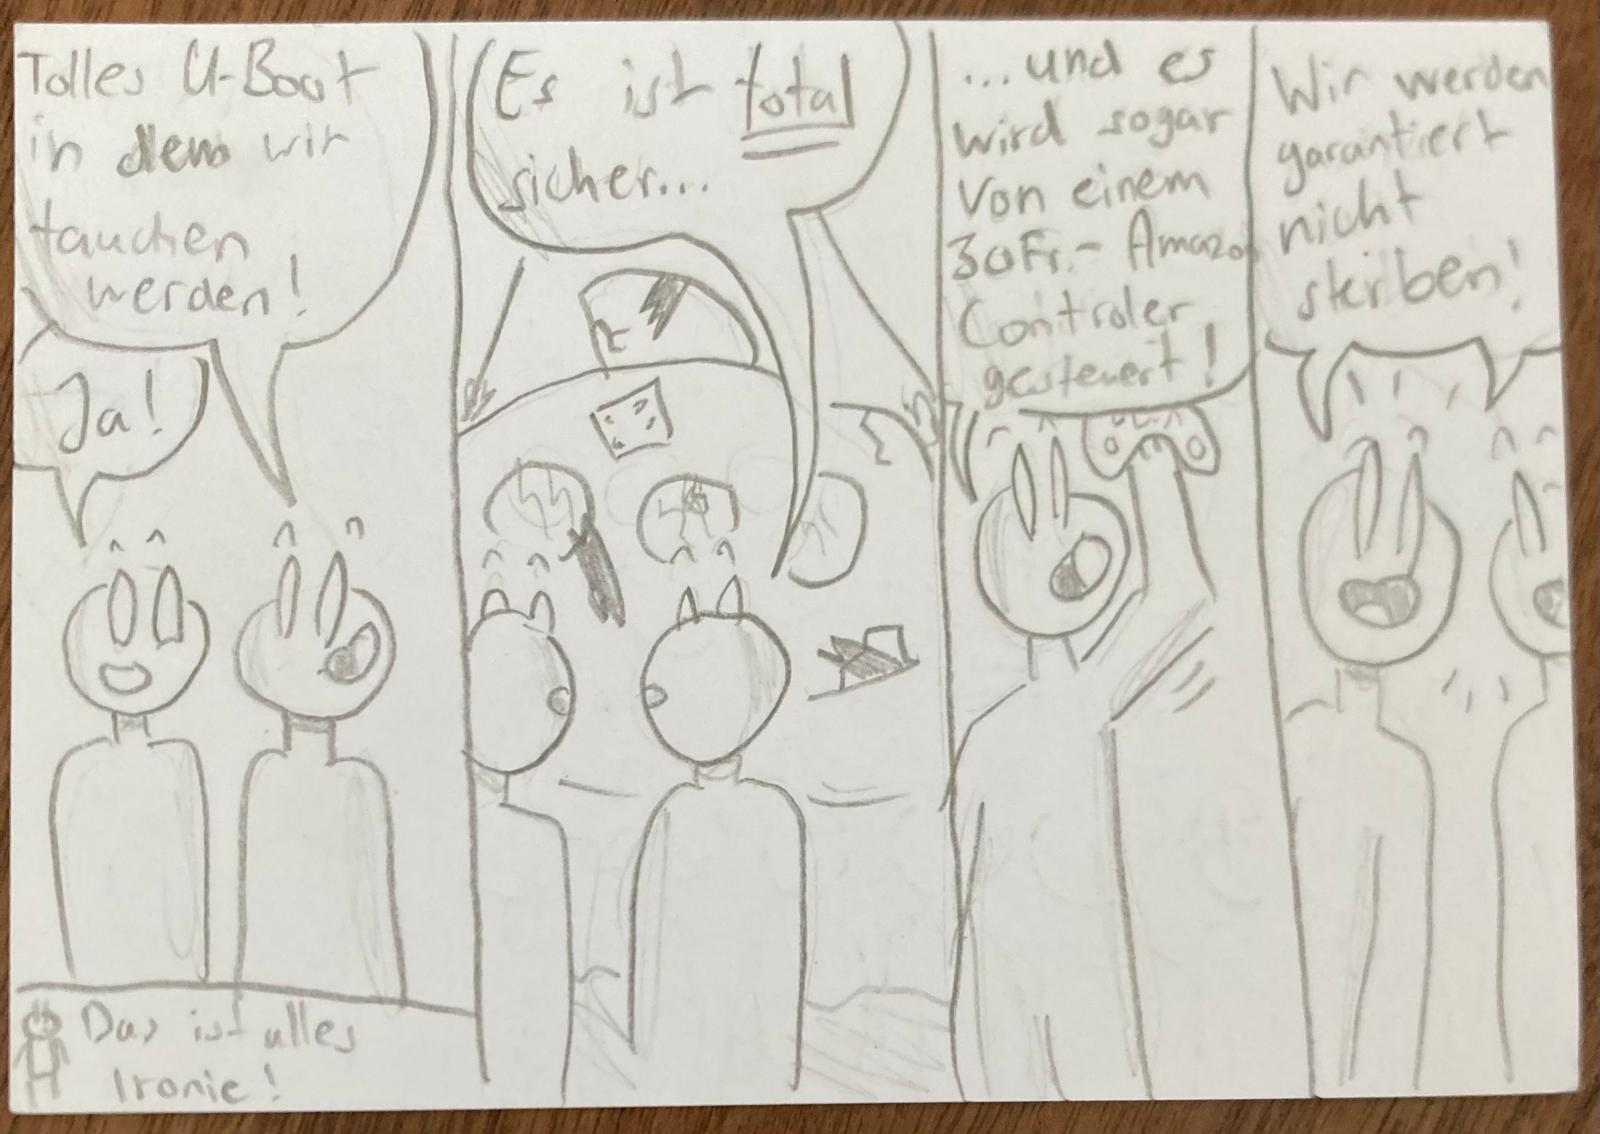 Tolles U-Boot
in dem wir
tauchen
werden!
Ja!
Das ist alles
Ironie!
Es ist total
sicher...
...und es
wird sogar
von einem
30Fr.- Amazon
Controler
gesteuert!
Wir werden
garantiert
nicht
sterben!